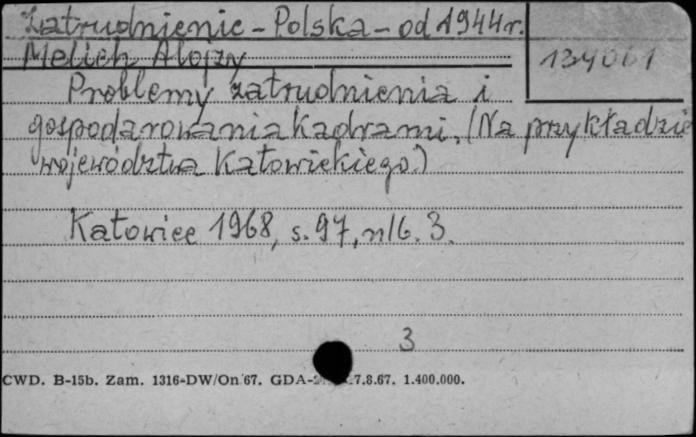 Zatrudnienie - Polska - od 1944 r.
Melich Alojzy
134061
Problemy zatrudnienia i
gospodarowania kadrami. (Na przykładzie
województwa Katowickiego.)
Katowice 1968, s. 97, nlb. 3.
3
CWD. B-15b. Zam. 1316-DW/On 67. GDA- 7.8.67. 1.400.000.